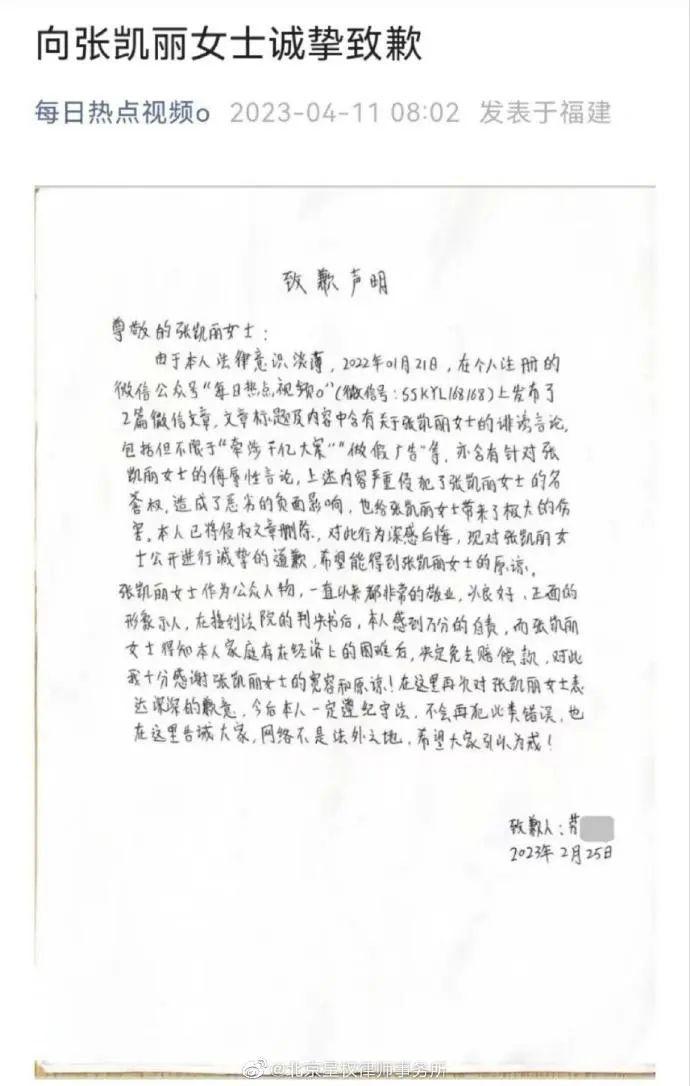 向张凯丽女士诚挚致歉
每日热点视频o 2023-04-11 08:02 发表于福建
致歉声明
尊敬的张凯丽女士：
由于本人法律意识淡薄，2022年01月21日，在个人注册的
微信公众号“每日热点视频o”(微信号：SSKYL168168)上发布了
2篇微信文章，文章标题及内容中含有关于张凯丽女士的诽谤言论，
包括但不限于“牵涉千亿大案”“做假广告”等，亦含有针对张
凯丽女士的侮辱性言论，上述内容严重侵犯了张凯丽女士的名
誉权，造成了恶劣的负面影响，也给张凯丽女士带来了极大的伤
害。本人已将侵权文章删除，对此行为深感后悔，现对张凯丽女
士公开进行诚挚的道歉，希望能得到张凯丽女士的原谅。
张凯丽女士作为公众人物，一直以来都非常的敬业，以良好、正面的
形象示人，在接到法院的判决书后，本人感到万分的自责，而张凯丽
女士得知本人家庭存在经济上的困难后，决定免去赔偿款，对此
我十分感谢张凯丽女士的宽容和原谅！在这里再次对张凯丽女士表
达深深的歉意，今后本人一定遵纪守法，不会再犯此类错误，也
在这里告诫大家，网络不是法外之地，希望大家引以为戒！
致歉人：
2023年2月25日
@北京星权律师事务所